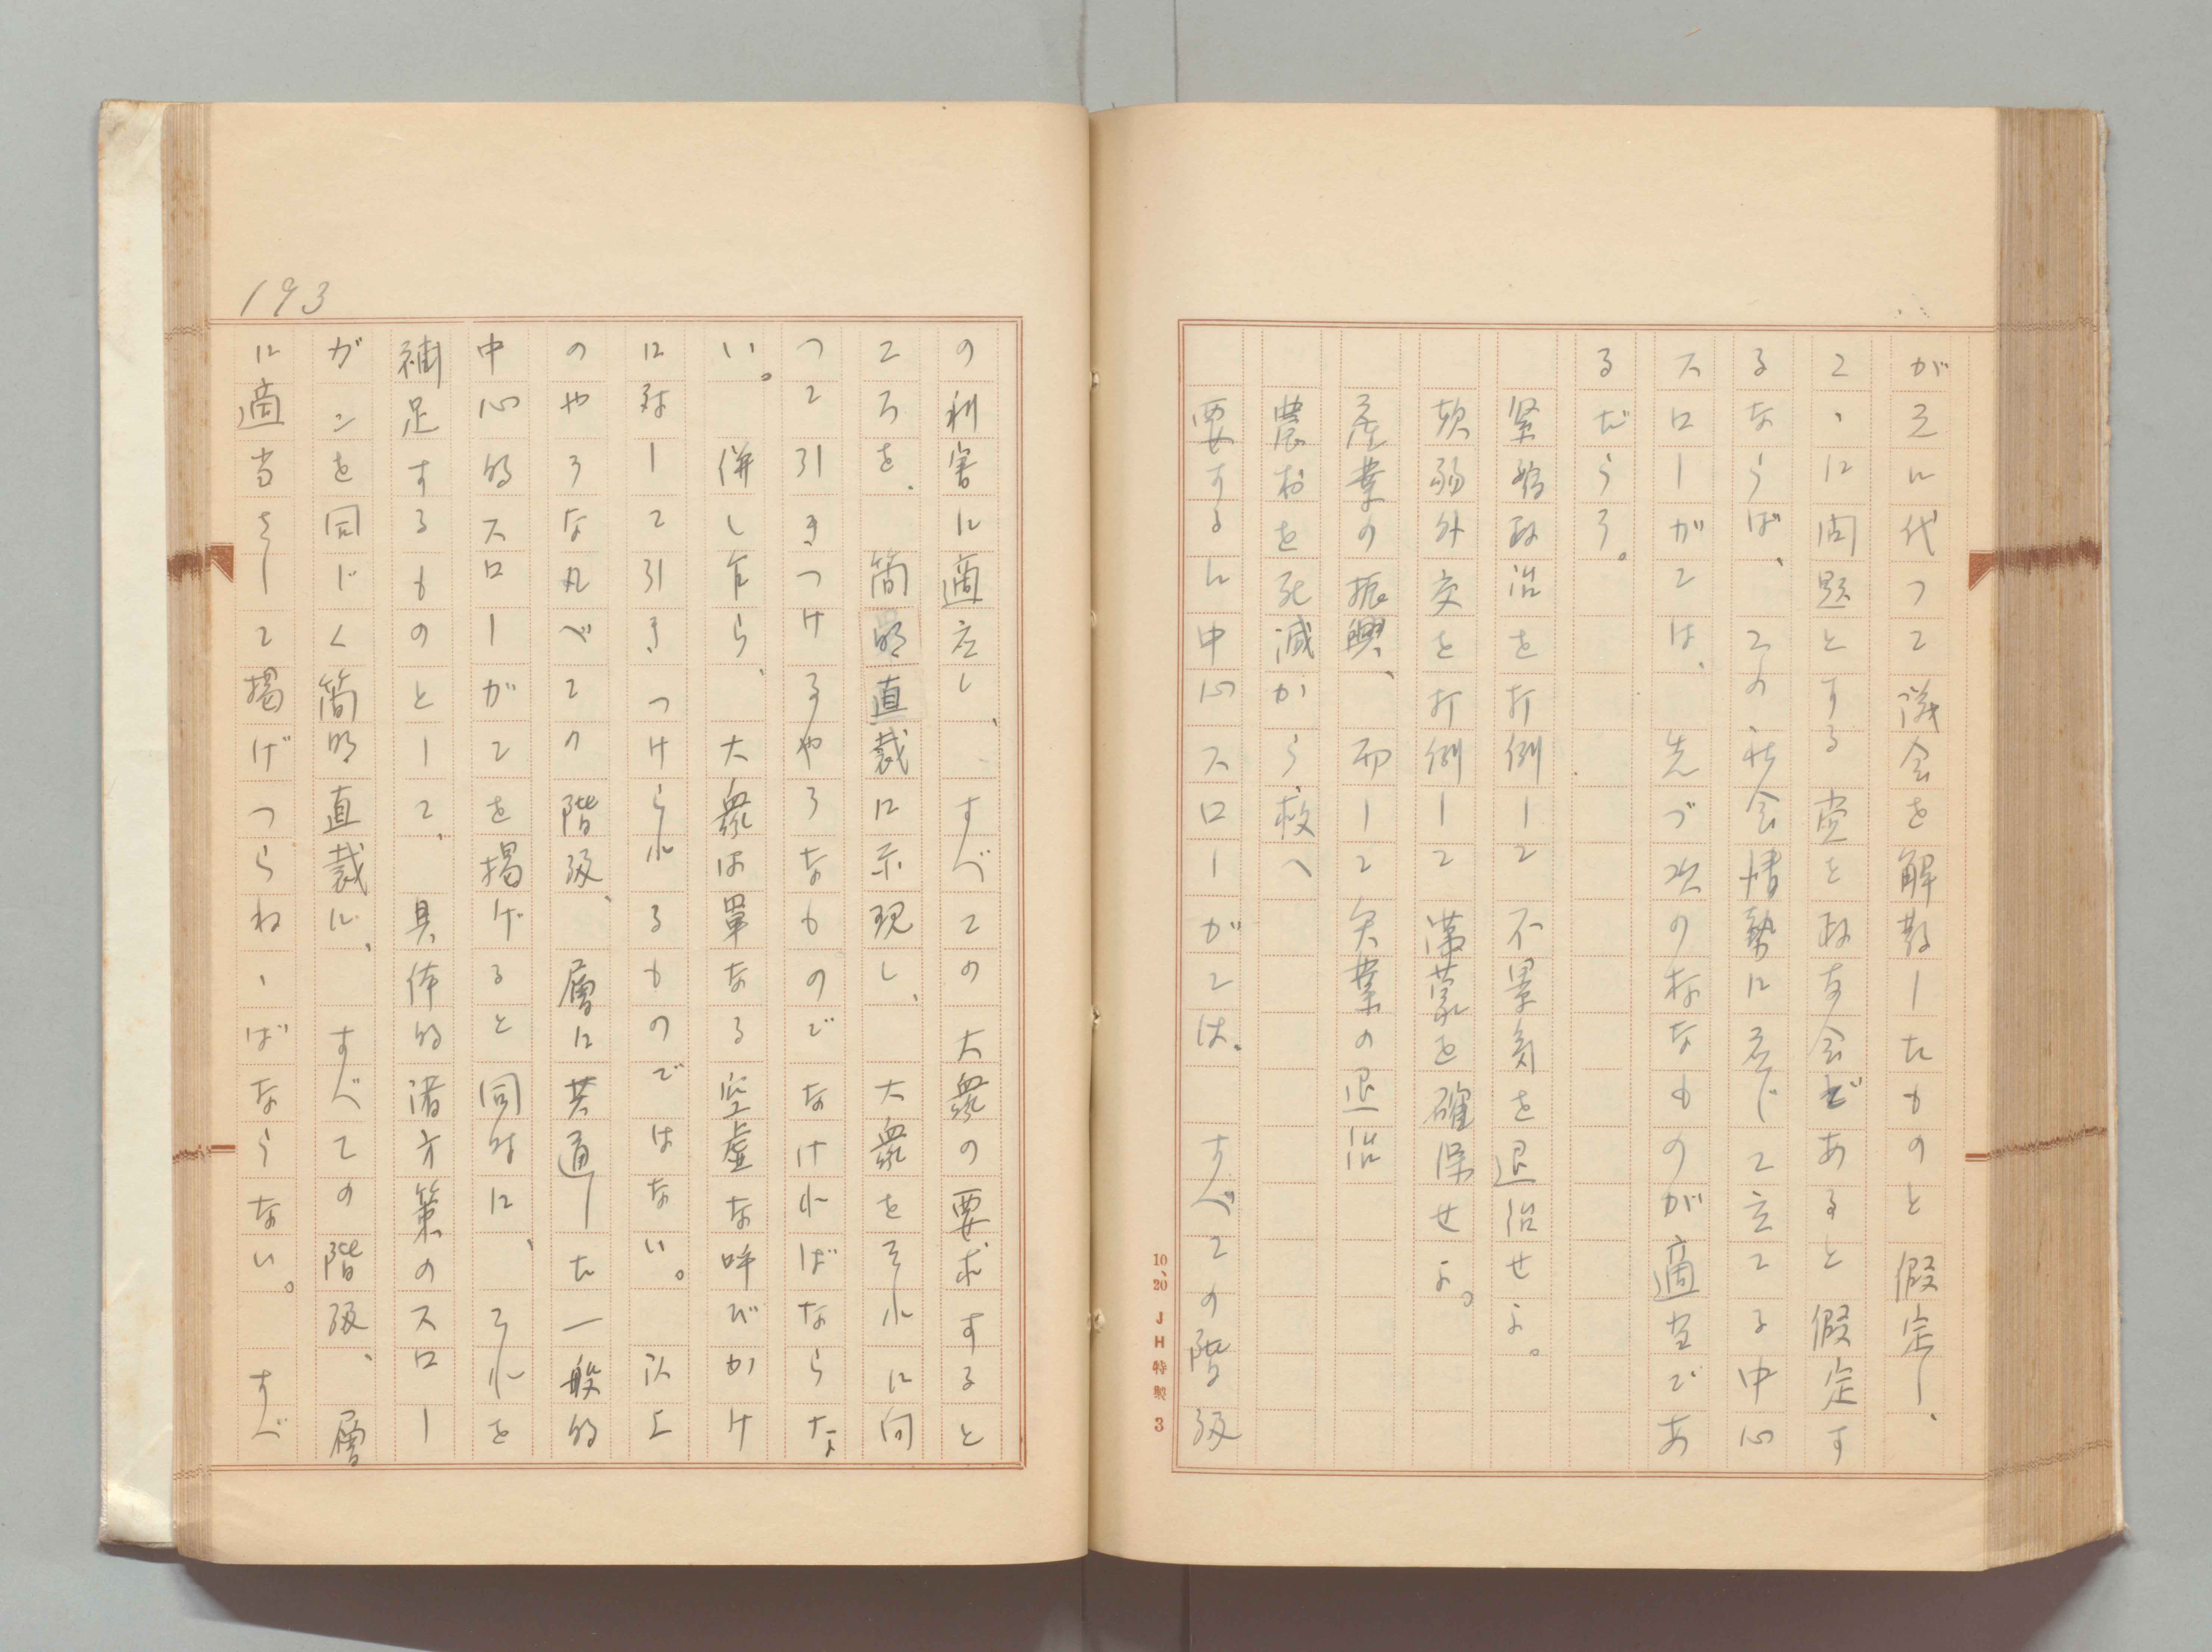 がこれに代つて議会を解散したものと假定し、
こゝに問題とする党を政友会であると假定す
るならば、この社会情勢に応じて立てる中心
スローガンは、先づ次の如なものが適当であ
るだらう。
緊縮政治を打倒して不景気を退治せよ。
軟弱外交を打倒して満蒙を確保せよ。
産業の振興、而して失業の退治
農村を死滅から救へ
要するに中心スローガンは、すべての階級
の利害に適応し、すべての大衆の要求すると
ころを、簡明直裁に示現し、大衆をそれに向
つて引きつけるやうなものでなければならな
い。併し乍ら、大衆は單なる空虚な呼びかけ
に対して引きつけられるものではない。以上
のやうな凡べての階級、層に共通した一般的
中心的スローガンを掲げると同時に、それを
補足するものとして、具体的諸方策のスロー
ガンを同じく簡明直裁に、すべての階級、層
に適当さして掲げつらねゝばならない。すべ
193
10、20 JH特製 3